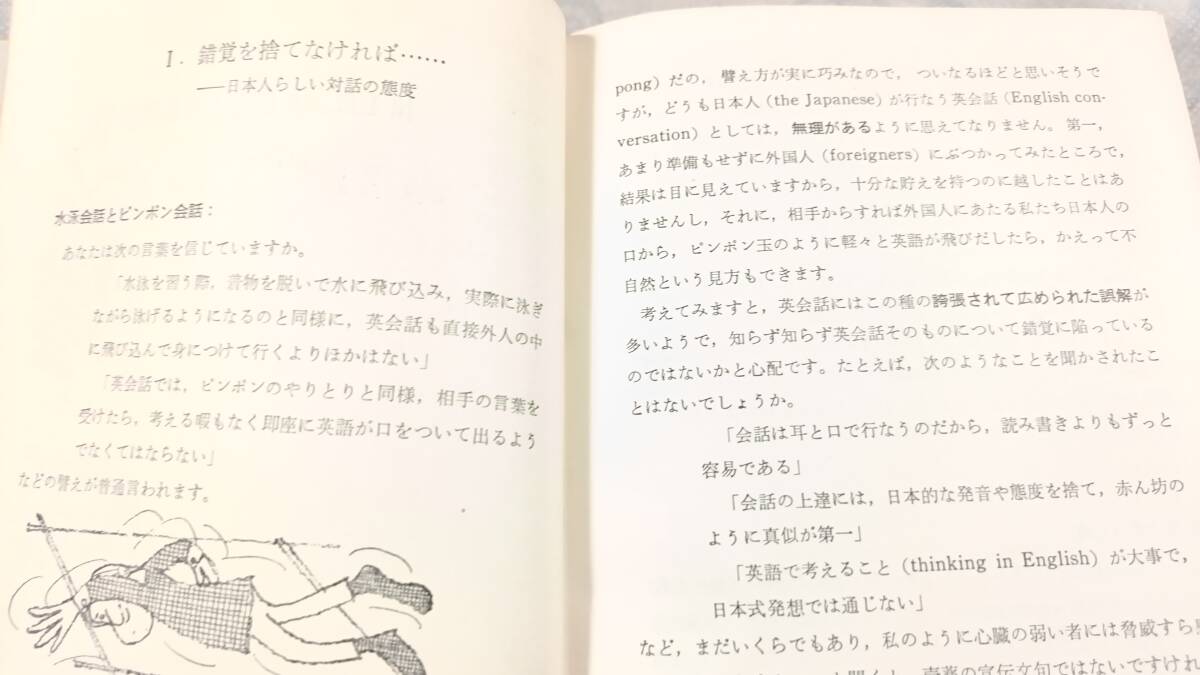 I. 錯覚を捨てなければ……
——日本人らしい対話の態度
水泳会話とピンポン会話：
あなたは次の言葉を信じていますか。
「水泳を習う際，着物を脱いで水に飛び込み，実際に泳ぎ
ながら泳げるようになるのと同様に，英会話も直接外人の中
に飛び込んで身につけて行くよりほかはない」
「英会話では，ピンポンのやりとりと同様，相手の言葉を
受けたら，考える暇もなく即座に英語が口をついて出るよう
でなくてはならない」
などの譬えが普通言われます。
pong）だの，譬え方が実に巧みなので，ついなるほどと思いそうで
すが，どうも日本人（the Japanese）が行なう英会話（English con-
versation）としては，無理があるように思えてなりません。第一，
あまり準備もせずに外国人（foreigners）にぶつかってみたところで，
結果は目に見えていますから，十分な貯えを持つのに越したことはあ
りませんし，それに，相手からすれば外国人にあたる私たち日本人の
口から，ピンポン玉のように軽々と英語が飛びだしたら，かえって不
自然という見方もできます。
考えてみますと，英会話にはこの種の誇張されて広められた誤解が
多いようで，知らず知らず英会話そのものについて錯覚に陥っている
のではないかと心配です。たとえば，次のようなことを聞かされたこ
とはないでしょうか。
「会話は耳と口で行なうのだから，読み書きよりもずっと
容易である」
「会話の上達には，日本的な発音や態度を捨て，赤ん坊の
ように真似が第一」
「英語で考えること（thinking in English）が大事で，
日本式発想では通じない」
など，まだいくらでもあり，私のように心臓の弱い者には脅威すら
の宣伝文句ではないですけれ